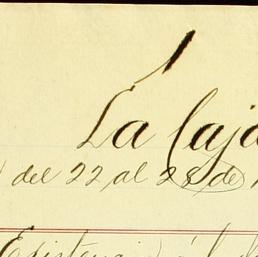 La Caja
del 22 al 28 de
Existencia